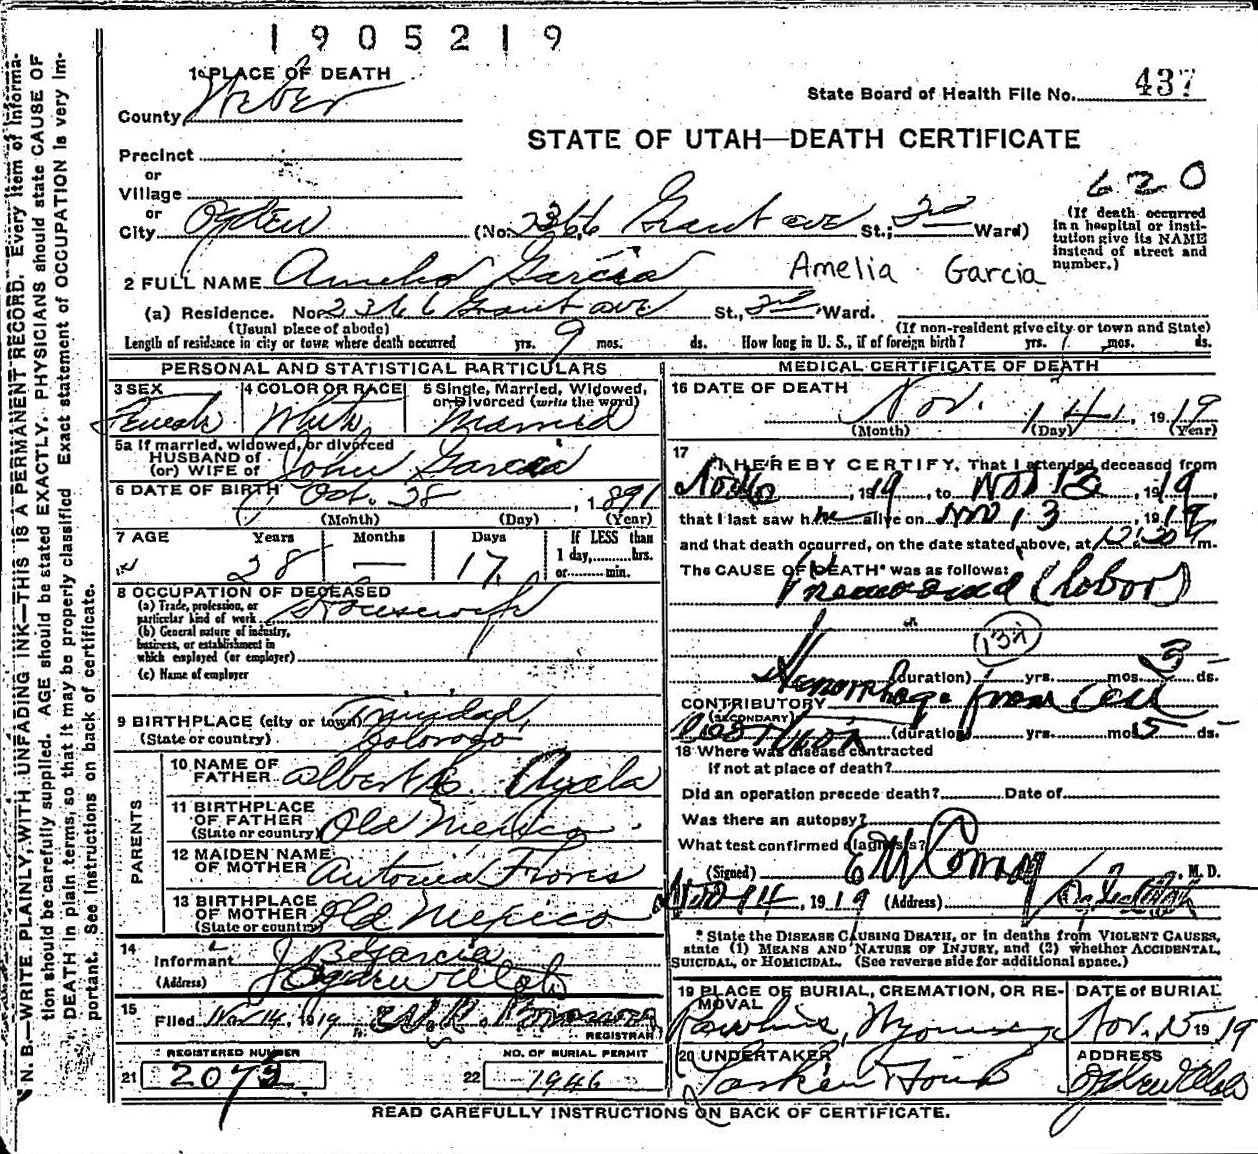 1905219
1 PLACE OF DEATH
County Weber
State Board of Health File No. 437
STATE OF UTAH—DEATH CERTIFICATE
Precinct
or
Village
or
City Ogden (No. 2366 Grant ave St.; 2nd Ward)
620
(If death occurred in a hospital or institution give its NAME instead of street and number.)
2 FULL NAME Amelia Garcia Amelia Garcia
(a) Residence. No. 2366 Grant ave St., 2nd Ward.
(Usual place of abode) (If non-resident give city or town and State)
Length of residence in city or town where death occurred yrs. 9 mos. ds. How long in U. S., if of foreign birth? yrs. mos. ds.
PERSONAL AND STATISTICAL PARTICULARS
3 SEX Female
4 COLOR OR RACE White
5 Single, Married, Widowed, or Divorced (write the word) Married
5a If married, widowed, or divorced
HUSBAND of
(or) WIFE of John Garcia
6 DATE OF BIRTH Oct. 28, 1891
(Month) (Day) (Year)
7 AGE Years Months Days If LESS than
28 — 17 1 day, hrs.
or min.
8 OCCUPATION OF DECEASED
(a) Trade, profession, or
particular kind of work Housewife
(b) General nature of industry,
business, or establishment in
which employed (or employer)
(c) Name of employer
9 BIRTHPLACE (city or town) Trinidad,
(State or country) Colorado
PARENTS
10 NAME OF FATHER Albert C. Ayala
11 BIRTHPLACE OF FATHER (State or country) Old Mexico
12 MAIDEN NAME OF MOTHER Antonia Flores
13 BIRTHPLACE OF MOTHER (State or country) Old Mexico
14 Informant J B Garcia
(Address) Ogden Utah
15 Filed Nov 14, 1919
REGISTRAR
REGISTERED NUMBER NO. OF BURIAL PERMIT
21 2072 22 1946
MEDICAL CERTIFICATE OF DEATH
16 DATE OF DEATH Nov. 14, 1919
(Month) (Day) (Year)
17 I HEREBY CERTIFY, That I attended deceased from
Nov 6, 1919, to Nov 13, 1919,
that I last saw h alive on Nov 13, 1919
and that death occurred, on the date stated above, at 12:30 m.
The CAUSE OF DEATH* was as follows:
Pneumonia (lobar)
(duration) yrs. mos. 3 ds.
CONTRIBUTORY Hemorrhage from
(SECONDARY)
(duration) yrs. mos. 5 ds.
18 Where was disease contracted
if not at place of death?
Did an operation precede death? Date of
Was there an autopsy?
What test confirmed diagnosis?
(Signed) E M Conroy, M. D.
Nov 14, 1919 (Address)
* State the DISEASE CAUSING DEATH, or in deaths from VIOLENT CAUSES,
state (1) MEANS AND NATURE OF INJURY, and (2) whether ACCIDENTAL,
SUICIDAL, or HOMICIDAL. (See reverse side for additional space.)
19 PLACE OF BURIAL, CREMATION, OR REMOVAL DATE of BURIAL
Rawlins, Wyoming Nov. 15 1919
20 UNDERTAKER ADDRESS
Larkin Ogden Utah
READ CAREFULLY INSTRUCTIONS ON BACK OF CERTIFICATE.
N. B.—WRITE PLAINLY, WITH UNFADING INK—THIS IS A PERMANENT RECORD. Every item of information should be carefully supplied. AGE should be stated EXACTLY. PHYSICIANS should state CAUSE OF DEATH in plain terms, so that it may be properly classified. Exact statement of OCCUPATION is very important. See instructions on back of certificate.